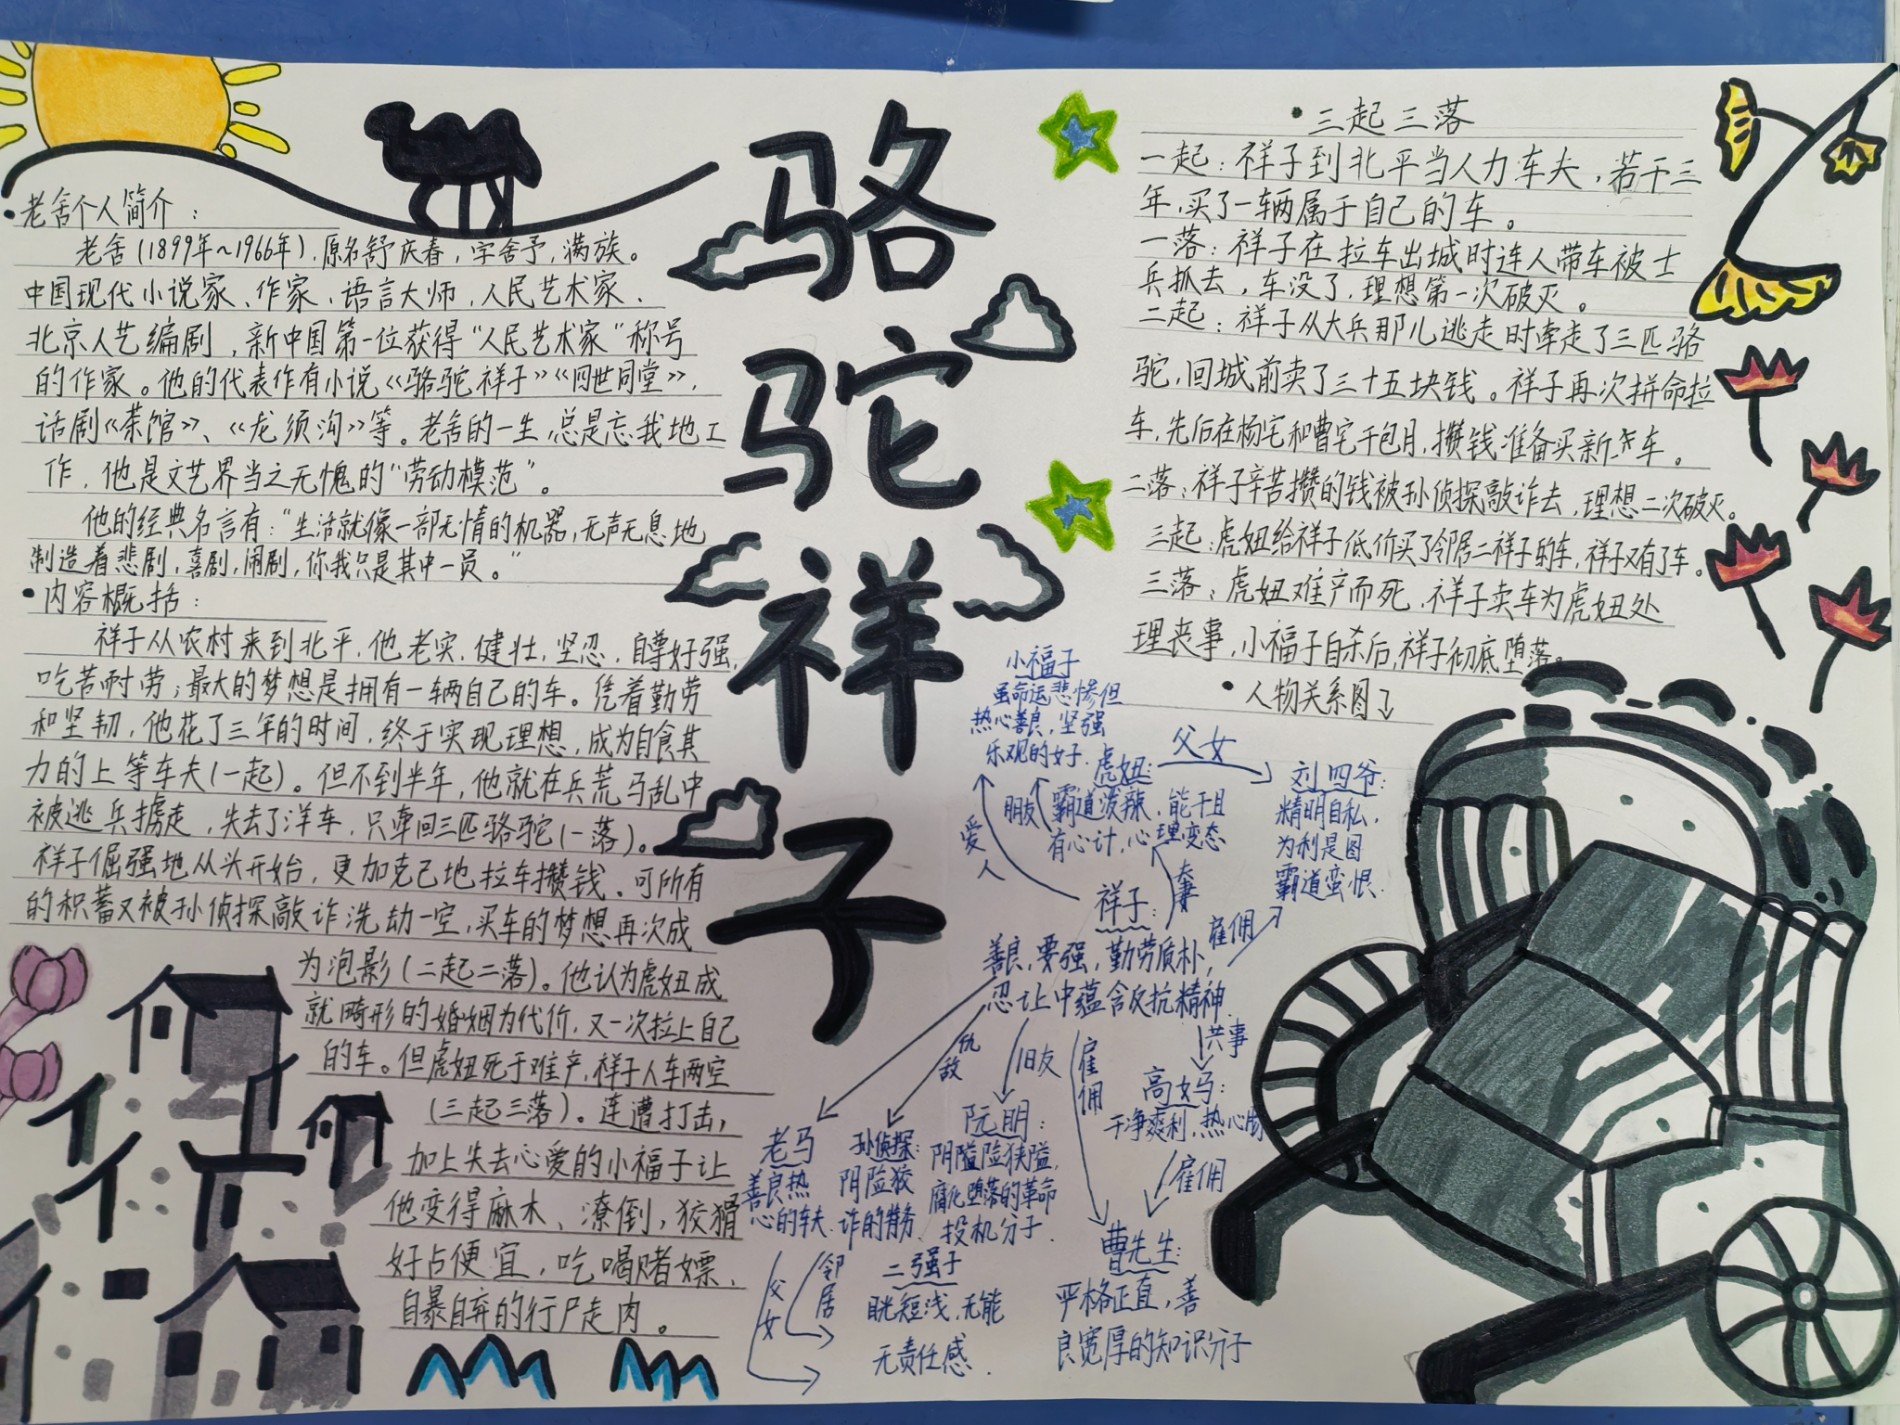 骆驼祥子
•老舍个人简介：
老舍（1899年~1966年），原名舒庆春，字舍予，满族。
中国现代小说家、作家、语言大师，人民艺术家、
北京人艺编剧，新中国第一位获得“人民艺术家”称号
的作家。他的代表作有小说《骆驼祥子》《四世同堂》，
话剧《茶馆》、《龙须沟》等。老舍的一生，总是忘我地工
作，他是文艺界当之无愧的“劳动模范”。
他的经典名言有：“生活就像一部无情的机器，无声无息地
制造着悲剧，喜剧，闹剧，你我只是其中一员。”
•内容概括：
祥子从农村来到北平，他老实，健壮，坚忍，自尊好强，
吃苦耐劳；最大的梦想是拥有一辆自己的车。凭着勤劳
和坚韧，他花了三年的时间，终于实现理想，成为自食其
力的上等车夫（一起）。但不到半年，他就在兵荒马乱中
被逃兵掳走，失去了洋车，只牵回三匹骆驼（一落）。
祥子倔强地从头开始，更加克己地拉车攒钱。可所有
的积蓄又被孙侦探敲诈洗劫一空，买车的梦想再次成
为泡影（二起二落）。他认为虎妞成
就畸形的婚姻为代价，又一次拉上自己
的车。但虎妞死于难产，祥子人车两空
（三起三落）。连遭打击，
加上失去心爱的小福子让
他变得麻木、潦倒，狡猾
好占便宜，吃喝赌嫖、
自暴自弃的行尸走肉。
•三起三落
一起：祥子到北平当人力车夫，若干三
年，买了一辆属于自己的车。
一落：祥子在拉车出城时连人带车被士
兵抓去，车没了，理想第一次破灭。
二起：祥子从大兵那儿逃走时牵走了三匹骆
驼，回城前卖了三十五块钱。祥子再次拼命拉
车，先后在杨宅和曹宅干包月，攒钱准备买新车。
二落：祥子辛苦攒的钱被孙侦探敲诈去，理想二次破灭。
三起：虎妞给祥子低价买了邻居二祥子的车，祥子又有了车。
三落：虎妞难产而死，祥子卖车为虎妞处
理丧事，小福子自杀后，祥子彻底堕落。
•人物关系图↓
小福子
虽命运悲惨但
热心善良，坚强
乐观的女子.
虎妞：
霸道泼辣，能干且
有心计，心理变态
父女
刘四爷：
精明自私，
为利是图
霸道蛮恨.
爱人
朋友
夫妻
雇佣
祥子：
善良，要强，勤劳质朴，
忍让中蕴含反抗精神.
仇敌
旧友
雇佣
共事
高妈：
干净爽利，热心肠
雇佣
老马
善良热
心的车夫.
孙侦探：
阴险狡
诈的特务.
阮明：
阴险狭隘，
腐化堕落的革命
投机分子.
曹先生：
严格正直，善
良宽厚的知识分子
父女
邻居
二强子
眼光短浅，无能
无责任感.